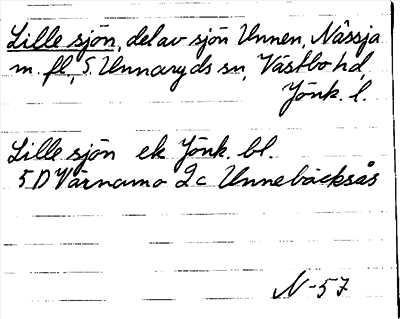 Lille sjön, del av sjön Unnen, Nässja
m. fl, S. Unnaryds sn, Västbo hd,
Jönk. l.
Lille sjön ek Jönk. bl.
5D Värnamo 2c Unnebäcksås
N-57